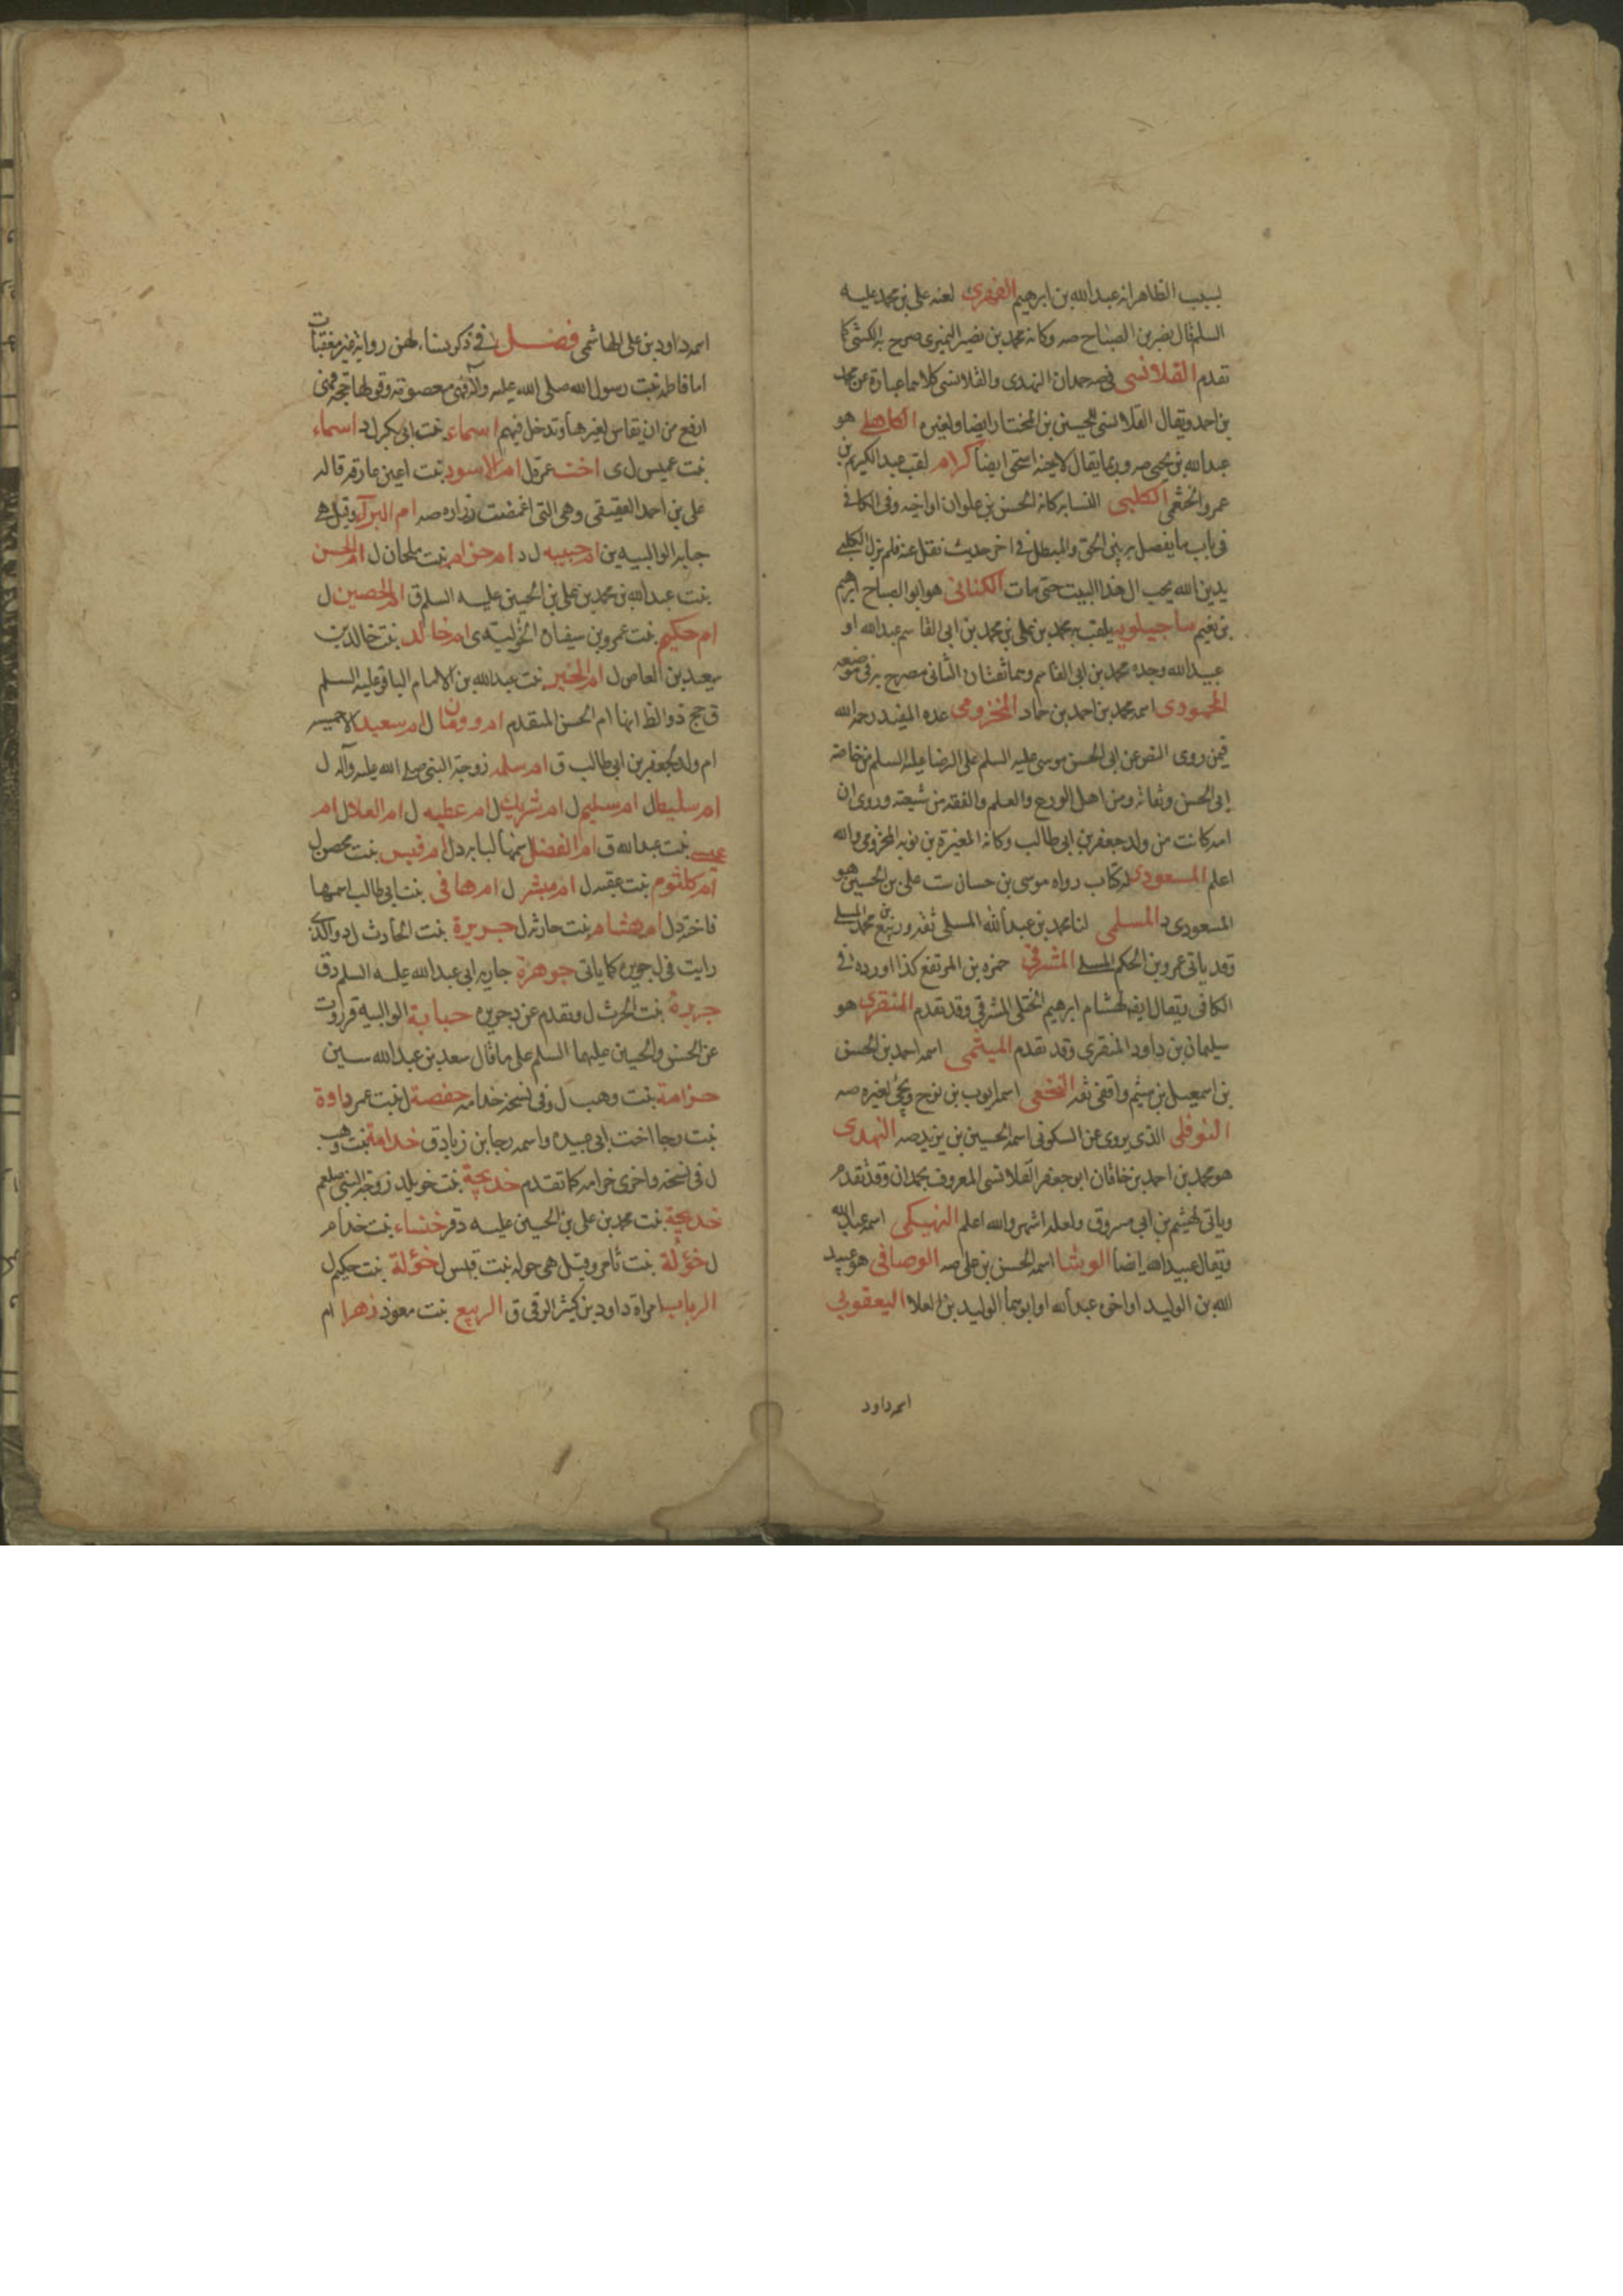 بسبب الظاهر انه عبدالله بن ابرهيم الفهرى لعنه على بن محمد عليه
السلم قال نصر بن الصباح صه وكانه محمد بن نصير النميرى صرح به الكشى كما
تقدم القلانسى فى صه حمدان النهدى والقلانسى كلاهما عبارة عن محمد
بن احمد ويقال القلانسى للحسين بن المختار ايضا ولغيره الكاهلى هو
عبدالله بن يحيى صه وربما يقال لاخيه اسحق ايضا كرام لقب عبدالكريم بن
عمرو الخثعمى الكلبى النسابه كانه الحسن بن علوان او اخيه وفى الكافى
فى باب ما يفصل به بين المحق والمبطل فى اخر حديث نقل عنه فلم يزل الكلبى
يدين الله بحب ال هذا البيت حتى مات الكنانى هو ابو الصباح ابرهيم
بن نعيم ماجيلويه يلقب به محمد بن على بن محمد بن ابى القاسم عبدالله او
عبيدالله وجده محمد بن ابى القاسم وهما ثقتان الثانى مصرح به فى موضعه
المحمودى اسمه محمد بن احمد بن حماد المخزومى عده المفيد رحمه الله
فيمن روى النص عن ابى الحسن موسى عليه السلم على الرضا عليه السلم من خاصة
ابى الحسن وثقاته ومن اهل الورع والعلم والفقه من شيعته وروى ان
امه كانت من ولد جعفر بن ابى طالب وكانه المغيرة بن توبه المخزومى والله
اعلم المسعودى له كتاب رواه موسى بن حسان ست على بن الحسين هو
المسعودى د المسلى لنا محمد بن عبدالله المسلى ثقه وربيع بن محمد المسلى
وقد ياتى عمرو بن الحكم المسلى المشرقى حمزه بن المرتفع كذا اورده فى
الكافى ويقال ايضا لهشام ابرهيم الختلى المشرقى وقد تقدم المنقرى هو
سليمان بن داود المنقرى وقد تقدم الميثمى اسمه احمد بن الحسن
بن اسمعيل بن ميثم واقفى ثقه النخعى اسمه ايوب بن نوح ويجئ لغيره صه
النوفلى الذى يروى عن السكونى اسمه الحسين بن يزيد صه النهدى
هو محمد بن احمد بن خاقان ابو جعفر القلانسى المعروف بحمدان وقد تقدم
وياتى لهيثم بن ابى مسروق ولعله اشهر والله اعلم النهيكى اسمه عبدالله
ويقال عبيدالله ايضا الوشا اسمه الحسن بن على صه الوصافى هو عبيد
الله بن الوليد او اخى عبدالله او ابوهما الوليد بن العلا اليعقوبى
اسمه داود
اسمه داود بن على الهاشمى فصل فى ذكر نساء لهن رواية غير مغفلات
اما فاطمة بنت رسول الله صلى الله عليه وآله فهى معصومة وقولها حجة فهى
ارفع من ان يقاس لغيرها وتدخل فيهم اسماء بنت ابى بكر ل د اسماء
بنت عميس ل ى اخت عمر قل ام الاسود بنت اعين عارفه قاله
على بن احمد العقيقى وهى التى اغمضت زراره صه ام البرآء وقيل هى
حبابه الوالبيه ين ام حبيبه ل د ام حزام بنت ملحان ل ام الحسن
بنت عبدالله بن محمد بن على بن الحسين عليه السلم ق ام الحصين ل
ام حكيم بنت عمرو بن سفيان الخوليه ى ام خالد بنت خالد بن
سعيد بن العاص ل ام الخير بنت عبدالله بن الامام الباقر عليه السلم
ق حج ذو الظ انها ام الحسن المتقدم ام رومان ل ام سعيد الاحمسيه
ام ولد لجعفر بن ابى طالب ق ام سلمه زوجة النبى صلى الله عليه وآله ل
ام سليط ل ام سليم ل ام شريك ل ام عطيه ل ام العلا ل ام
عيسى بنت عبدالله ق ام الفضل اسمها لبابه د ل ام قيس بنت محصن ل
ام كلثوم بنت عقبه ل ام مبشر ل ام هانى بنت ابى طالب اسمها
فاخته د ل ام هشام بنت حارثه ل جويرة بنت الحارث ل د والذى
رايت فى ل جويره كما ياتى جوهرة جاريه ابى عبدالله عليه السلم د ق
جريرة بنت الحرث ل وتقدم عن د جويره حبابة الوالبية قر روت
عن الحسن والحسين عليهما السلم على ما قال سعد بن عبدالله سين
حزامة بنت وهب ل وفى نسخه خدامه حفصة ل بنت عمر داوة
بنت رجا اخت ابى عبيده واسمه رجا بن زياد ق خدامة بنت وهب
ل فى نسخه واخرى خرامه كما تقدم خديجة بنت خويلد زوجة النبى صلعم
خديجة بنت محمد بن على بن الحسين عليه د قر خنساء بنت خذام
ل خؤلة بنت ثامر وقيل هى خوله بنت قيس ل خؤلة بنت حكيم ل
الرباب امراة داود بن كثير الرقى ق الربيع بنت معوذ زهرا ام